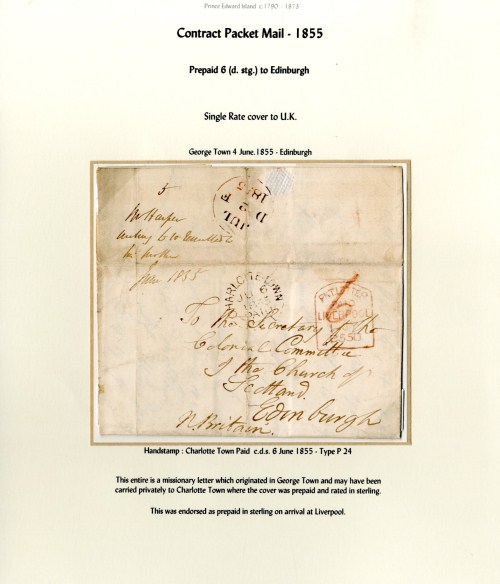 Prince Edward Island c.1790 - 1873
Contract Packet Mail - 1855
Prepaid 6 (d. stg.) to Edinburgh
Single Rate cover to U.K.
George Town 4 June.1855 - Edinburgh
Mr Harper
June 1855
1855
JUL
CHARLOTTETOWN
JU 6
PAID
LIVERPOOL
To the Secretary of the
Colonial Committee
of the Church of
Scotland.
Edinburgh
N. Britain.
Handstamp : Charlotte Town Paid c.d.s. 6 June 1855 - Type P 24
This entire is a missionary letter which originated in George Town and may have been
carried privately to Charlotte Town where the cover was prepaid and rated in sterling.
This was endorsed as prepaid in sterling on arrival at Liverpool.